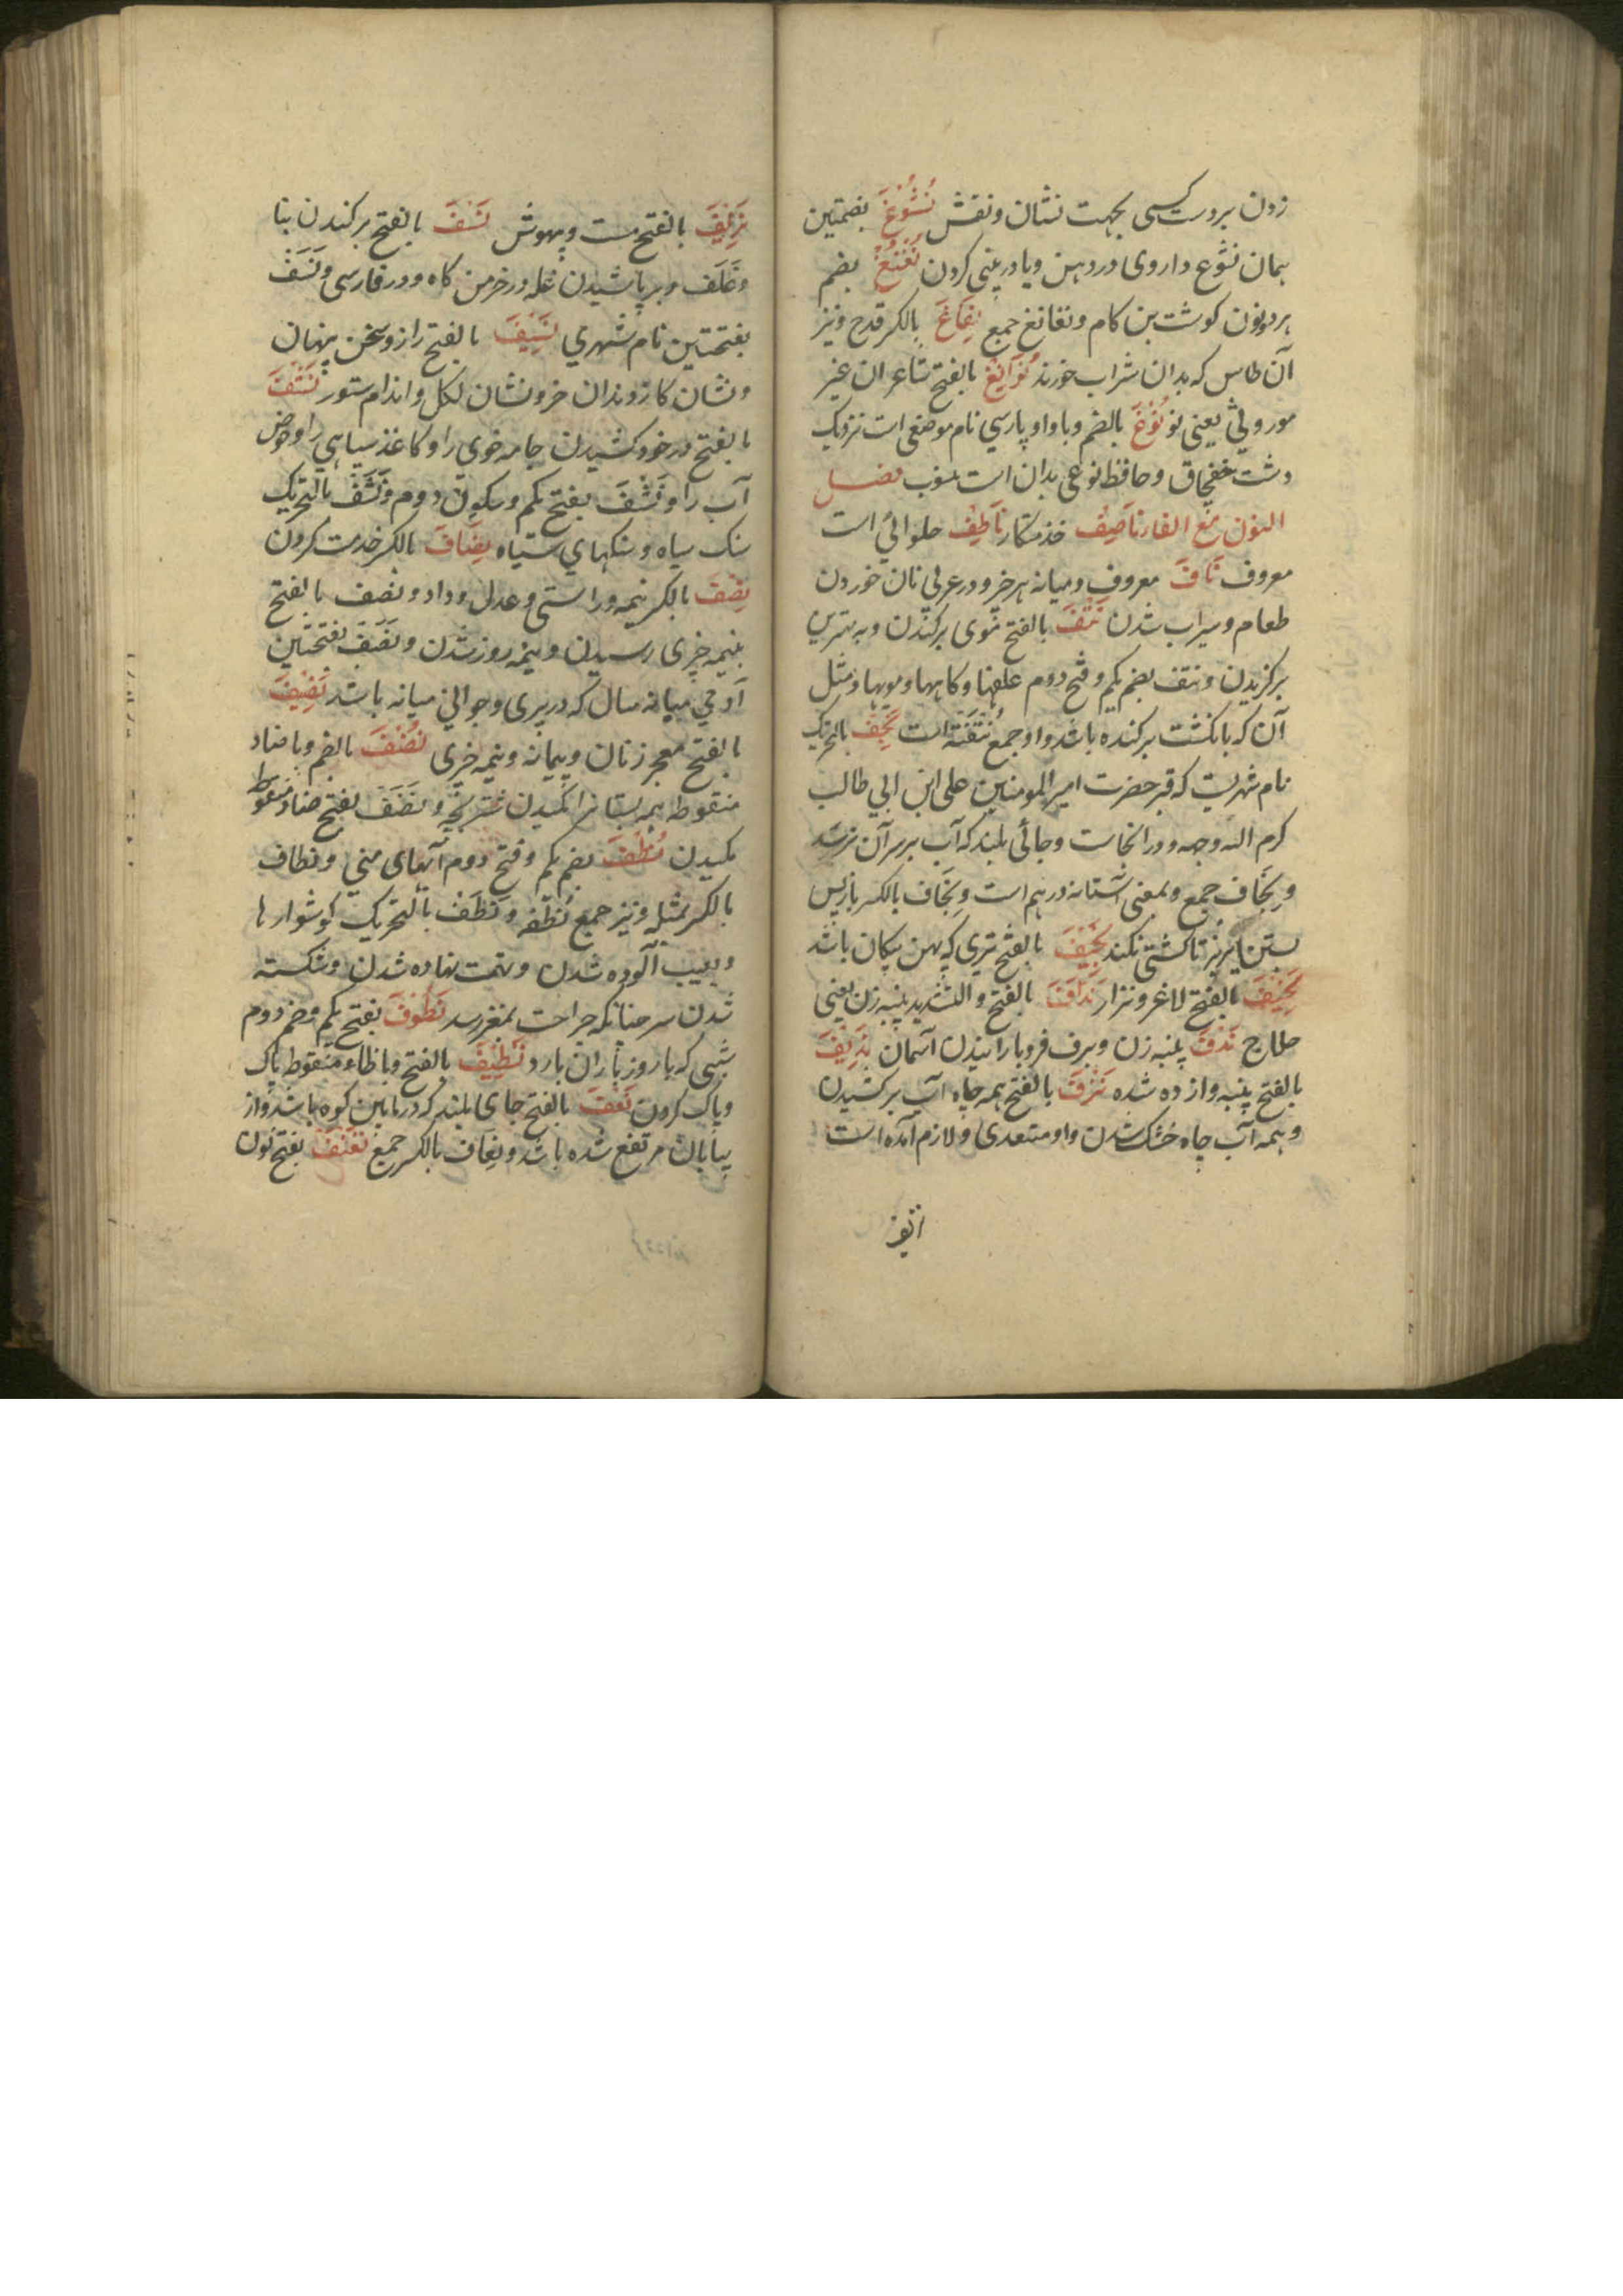 زدن بر دست کسی بجهت نشان و نقش نُشُوْغَ بضمتین
همان نشوع داروی در دهن و یا در بینی کردن نُغْنُغْ بضم
هر دو نون کوشت بن کام و نغانغ جمع نِغَاغَ بالکسر قدح و نیز
آن طاس که بدان شراب خورند نَوَابِغْ بالفتح شاعران غیر
موروثی یعنی نو نُوْغَ بالضم و با واو پارسی نام موضعی است نزدیک
دشت خفچاق و حافظ نوعی بدان است منسوب فصل
النون مع الفاء ناصِفْ خدمتکار ناطِفْ حلوائی است
معروف نَافَ معروف و میانه هر چیز و در عربی نان خوردن
طعام و سیراب شدن نَتْفَ بالفتح موی برکندن و بهترین
برکزیدن و نتف بضم یکم و فتح دوم علفها و کاهها و مویها و مثل
آن که بانکشت برکنده باشد و او جمع نُتْفَتَه است نَجَفْ بالتحریک
نام شهریست که قبر حضرت امیر المومنین علی ابن ابی طالب
کرم الله وجهه در انجاست و جائی بلند که آب بر سر آن نرسد
و نِجَاف جمع و بمعنی آستانه در هم است و نِجَاف بالکسر باز پس
بستن تا کشنی نکند نَجِیْفَ بالفتح تیری که پهن پیکان باشد
نَحِیْفَ بالفتح لاغر و نزار نَدَّافَ بالفتح و التشدید پنبه زن یعنی
حلاج نَدْفَ پنبه زدن و برف فرو بارانیدن آسمان نَدِیْفَ
بالفتح پنبه واز ده شده نَزْفَ بالفتح همه چاه آب برکشیدن
و همه آب چاه خشک شدن و او متعدی و لازم آمده است
نَزِیْفَ بالفتح مست و بیهوش نَسْفَ بالفتح برکندن بنا
و عَلَف و بر پاشیدن غله در خرمن کاه و در فارسی و نَسَفْ
بفتحتین نام شهری نَسِیْفَ بالفتح راز و سخن پنهان
و نشان کاز دندان خر و نشان لکل و اندام ستور نَشْفَ
بالفتح در خود کشیدن جامه خوی را و کاغذ سیاهی را و حوض
آب را و نَشْفَ بفتح یکم و سکون دوم و نَشَفْ بالتحریک
سنک سیاه و سنکهای سیاه نِصَافَ بالکسر خدمت کردن
نِصْفَ بالکسر نیمه و راستی و عدل و داد و نصف بالفتح
بنیمه چیزی رسیدن و نیمه روز شدن و نَصَفْ بفتحتین
آدمی میانه سال که در پیری و جوانی میانه باشد نَصِیْفَ
بالفتح معجر زنان و پیمانه و نیمه چیزی نُضْفَ بالضم و با ضاد
منقوطه همه پستانرا مکیدن شتر بچه و نَضَفَ بفتح ضاد منقوط
مکیدن نُطَفَ بضم یکم و فتح دوم آبهای منی و نطاف
بالکسر مثله و نیز جمع نُطْفَه و نَطَف بالتحریک کوشوارها
و بعیب آلوده شدن و تهمت نهاده شدن و شکسته
شدن سر چنانکه جراحت بمغز رسد نَطُوْفَ بفتح یکم و ضم دوم
شبی که با روز باران بارد نَظِیْفَ بالفتح و با ظاء منقوطه پاک
و پاک کردن نَعْفَ بالفتح جای بلند که در مابین کوه باشد و از
بیابان مرتفع شده باشد و نِعَاف بالکسر جمع نَغْنَفَ بفتح نون